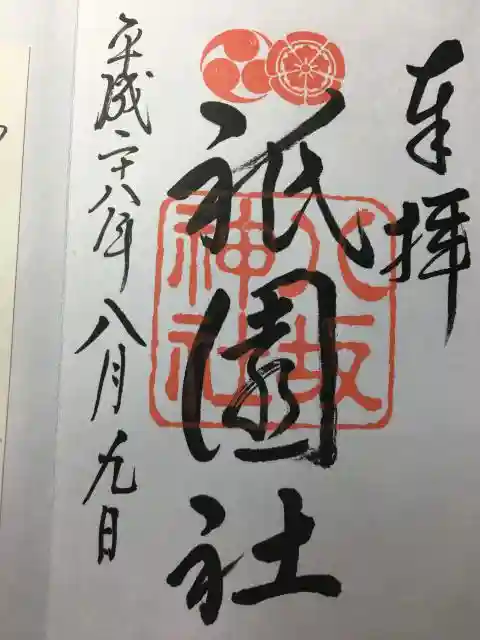 奉拝
祇園社
八坂
神社
平成二十八年八月九日